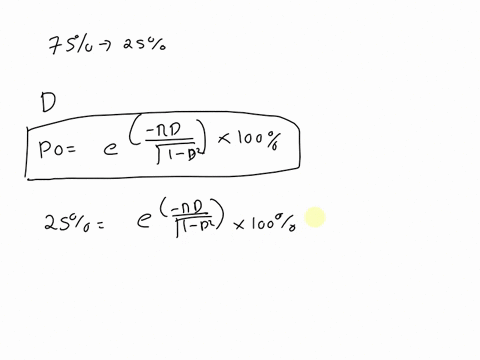 75% → 25%
D
PO = e^(-ΠD/√(1-D²)) × 100%
25% = e^(-ΠD/√(1-D²)) × 100%